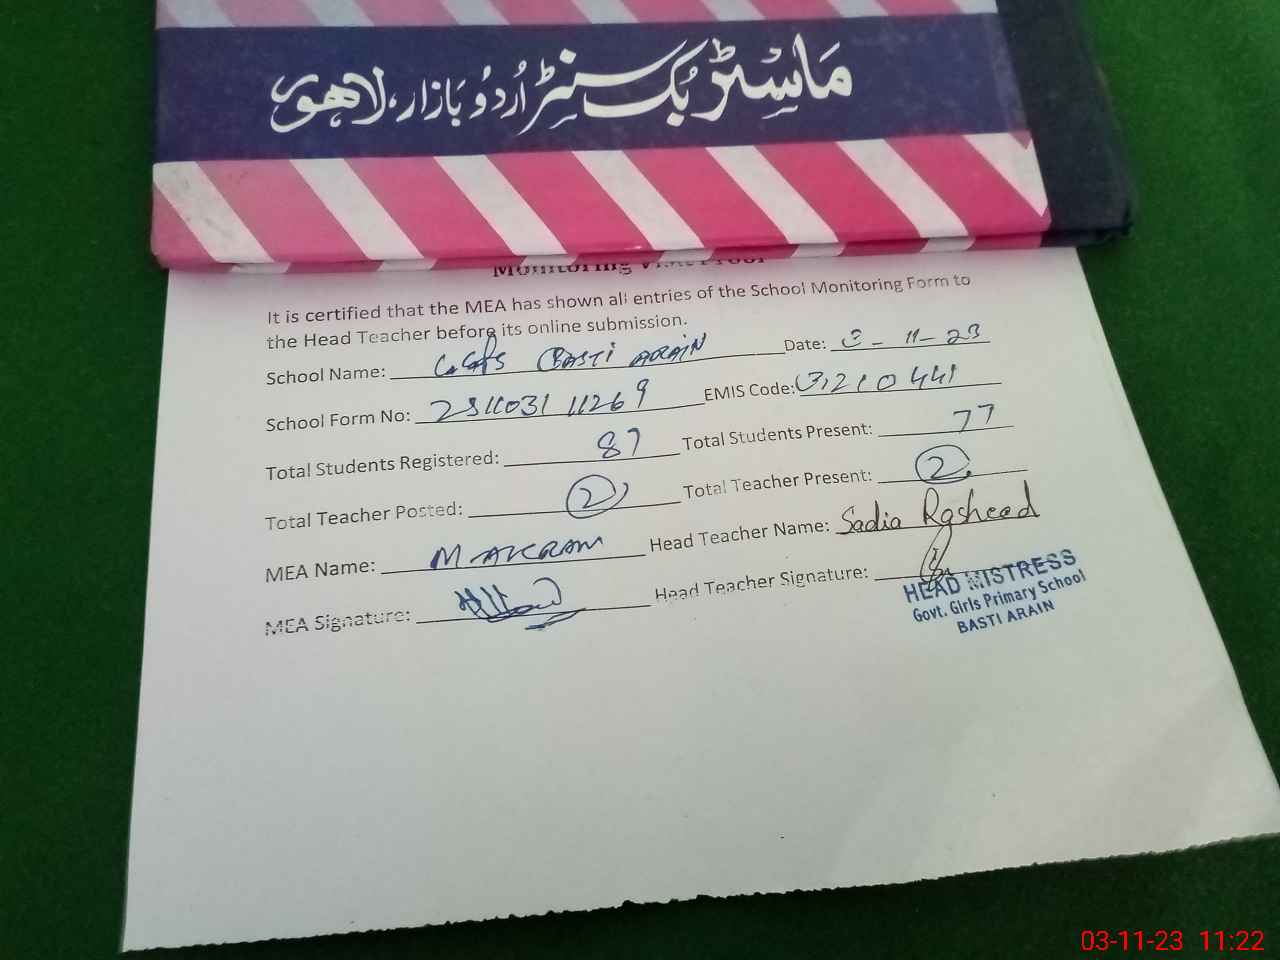 ماسٹر بک سنٹر اُردُو بازار، لاہور
Monitoring Visit Proof
It is certified that the MEA has shown all entries of the School Monitoring Form to
the Head Teacher before its online submission.
School Name: G.G.P.S BASTI ARAIN Date: 3-11-23
School Form No: EMIS Code: 31210441
Total Students Registered: 87 Total Students Present: 77
Total Teacher Posted: 2 Total Teacher Present: 2
MEA Name: M AKRAM Head Teacher Name: Sadia Rasheed
MEA Signature: Head Teacher Signature:
HEAD MISTRESS
Govt. Girls Primary School
BASTI ARAIN
03-11-23 11:22